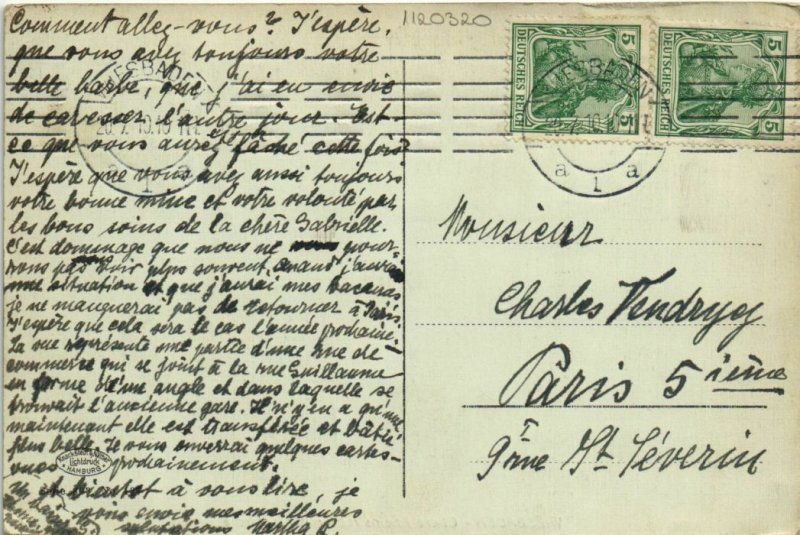 Comment allez-vous? J'espère,
que vous avez toujours votre
belle barbe, que j'ai eu envie
de caresser l'autre jour. Est-
ce que vous aurez été fâché cette fois?
J'espère que vous avez aussi toujours
votre bonne mine et votre volonté par
les bons soins de la chère Gabrielle.
C'est dommage que nous ne pour-
rons pas nous voir plus souvent. Quand j'aurai
une situation et que j'aurai mes vacances
je ne manquerai pas de retourner à Paris.
J'espère que cela sera le cas l'année prochaine.
La vue représente une partie d'une rue de
commerce qui se joint à la rue Guillaume
en forme d'une angle et dans laquelle se
trouvait l'ancienne gare. Il n'y en a qu'une
maintenant elle est transférée et bâtie
plus belle. Je vous enverrai quelques cartes-
vues prochainement.
Et bientôt à vous lire, je
vous envoie mes meilleures
salutations Martha R.
Knackstedt & Näther
Lichtdruck
HAMBURG
1120320
5 DEUTSCHES REICH 5
5 DEUTSCHES REICH 5
WIESBADEN
26.7.10.10
1 a
WIESBADEN
26.7.10.10
a 1 a
Monsieur
Charles Vendryey
Paris 5ième
9 rue St. Séverin